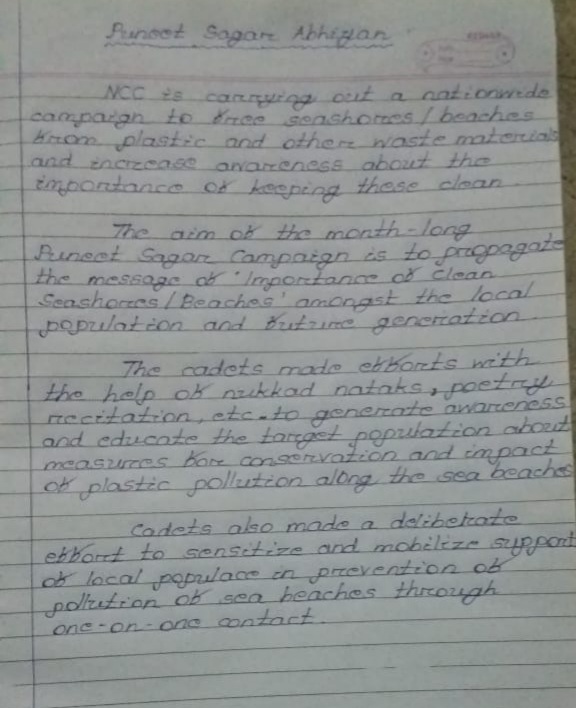 Puneet Sagar Abhiyan
NCC is carrying out a nationwide
campaign to free seashores/beaches
from plastic and other waste materials
and increase awareness about the
importance of keeping these clean
The aim of the month-long
Puneet Sagar Campaign is to propagate
the message of 'Importance of Clean
Seashores/Beaches' amongst the local
population and future generation
The cadets made efforts with
the help of nukkad nataks, poetry
recitation, etc. to generate awareness
and educate the target population about
measures for conservation and impact
of plastic pollution along the sea beaches
Cadets also made a deliberate
effort to sensitize and mobilize support
of local populace in prevention of
pollution of sea beaches through
one-on-one contact.